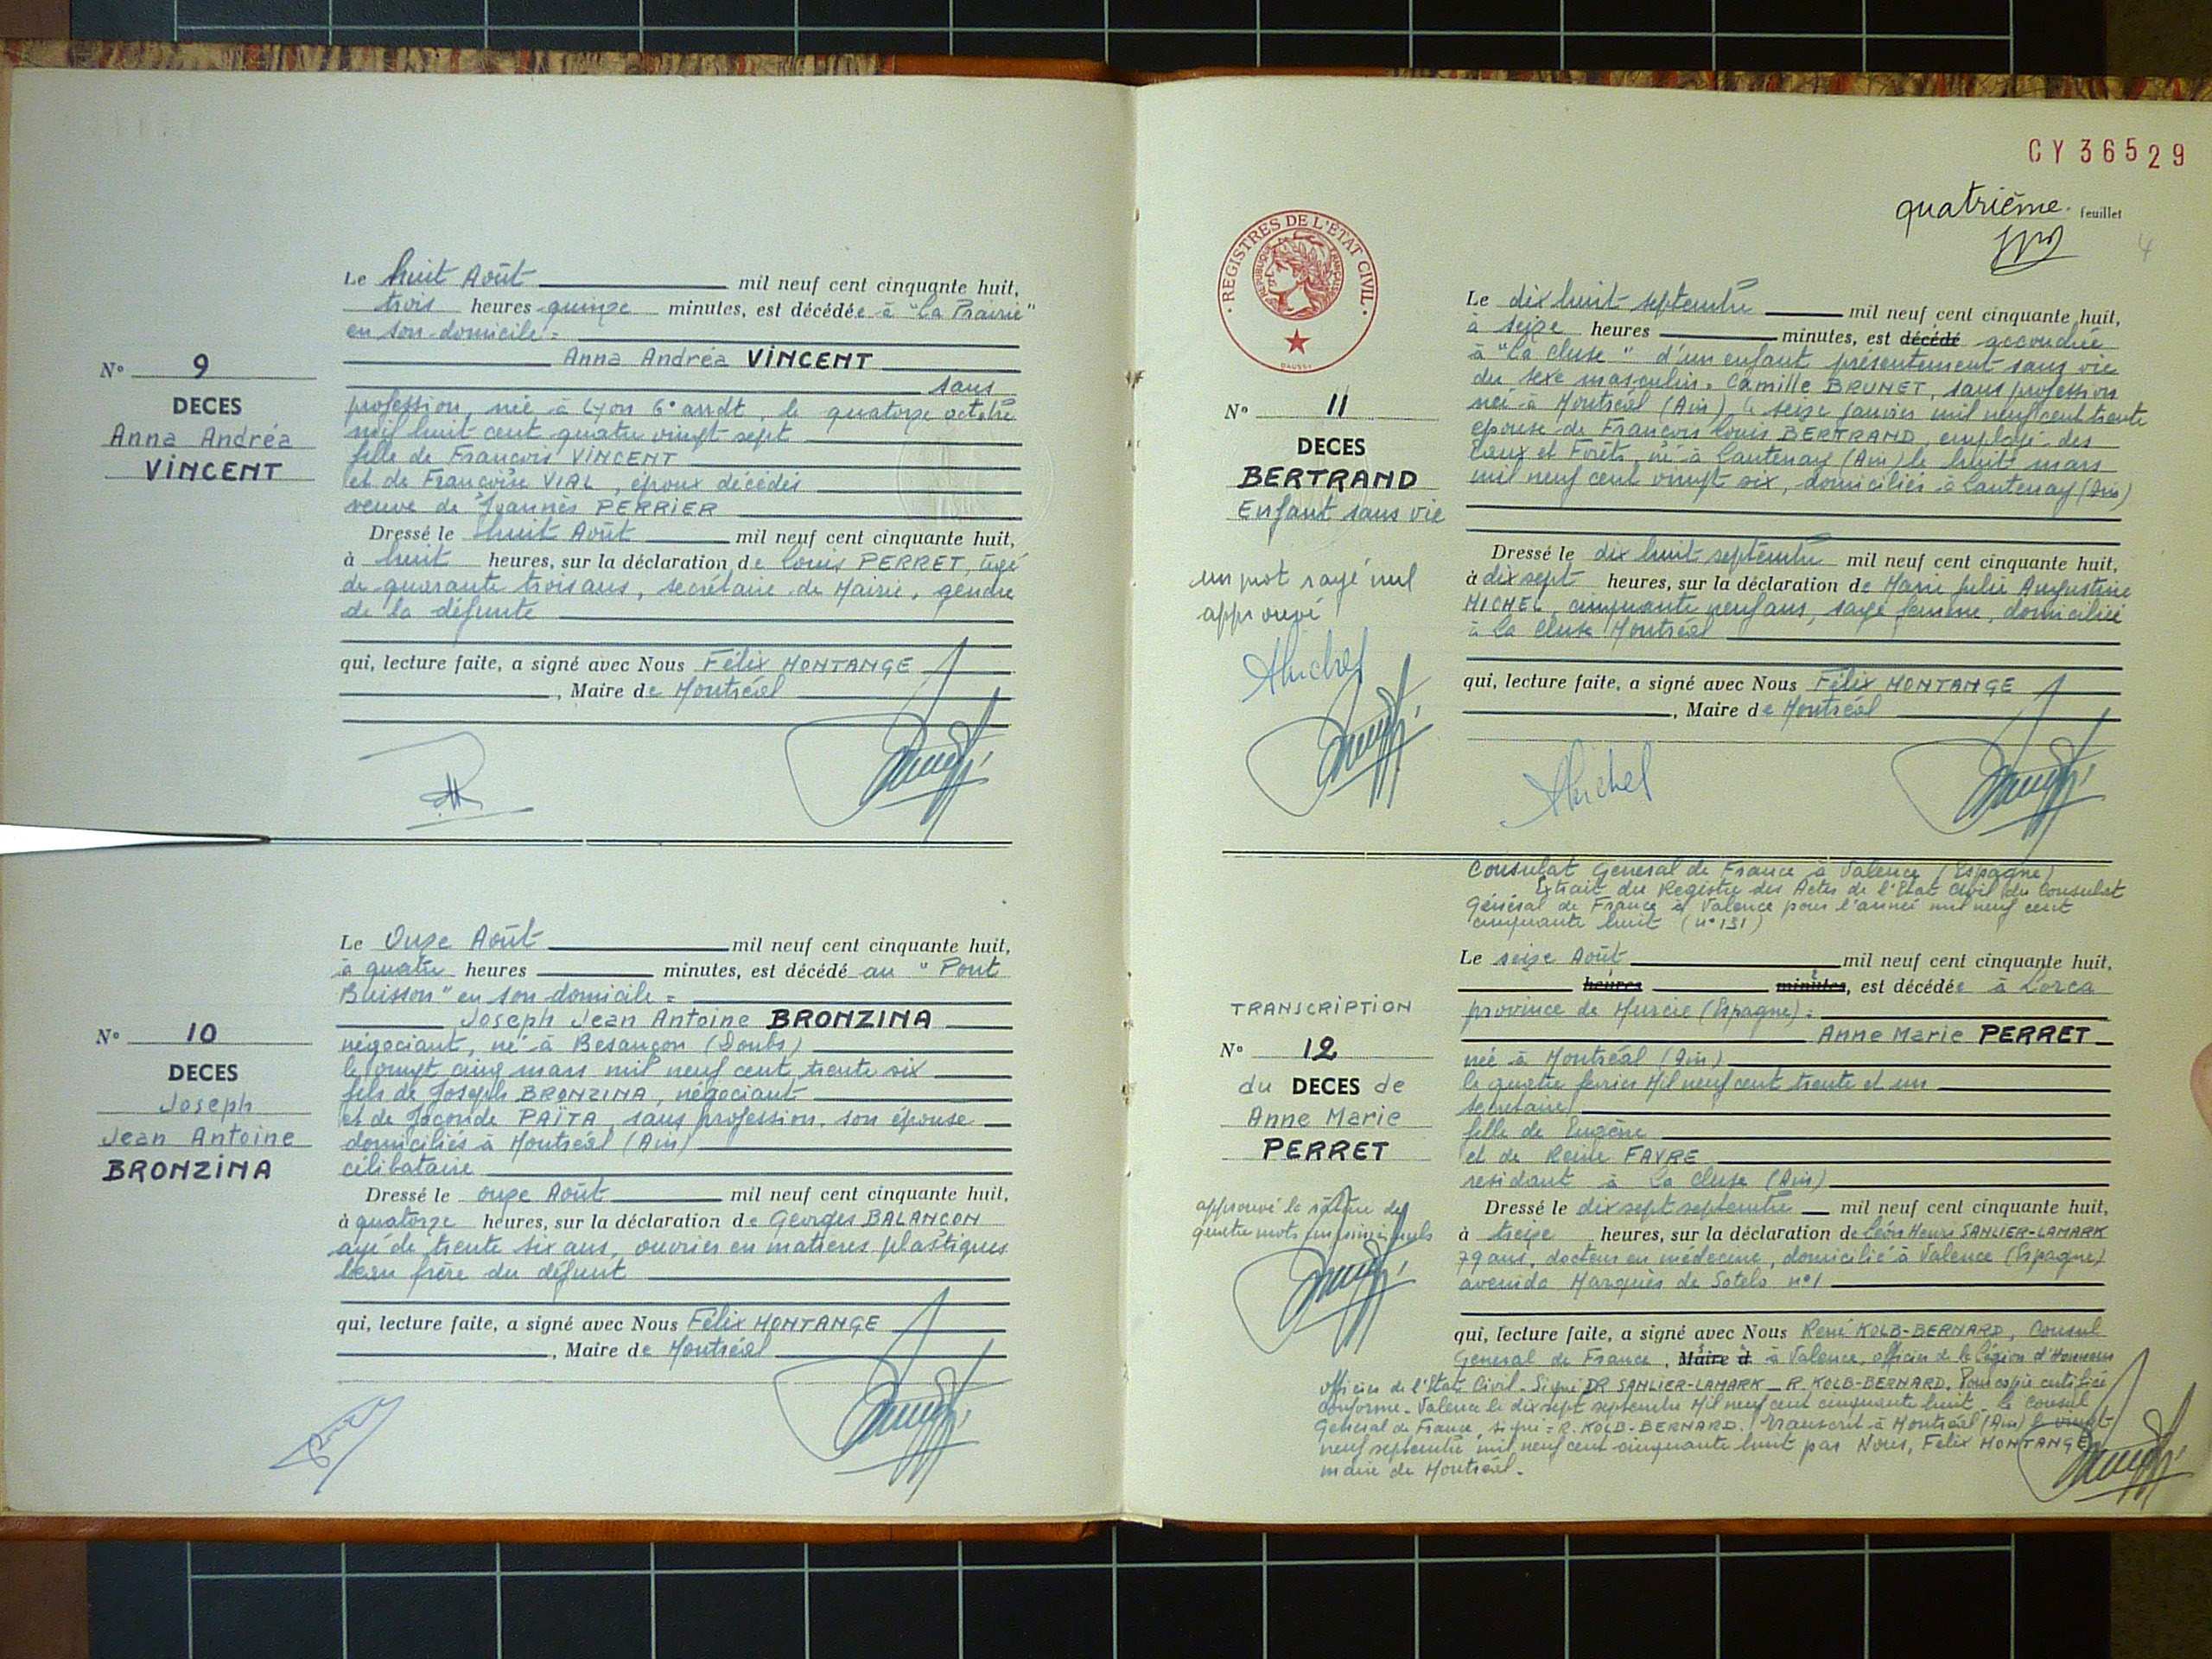 Le huit Août mil neuf cent cinquante huit,
trois heures quinze minutes, est décédée à "La Prairie"
en son domicile =
Anna Andréa VINCENT
sans
profession, née à Lyon 6° arrdt, le quatorze octobre
mil huit cent quatre vingt sept
fille de François VINCENT
et de Françoise VIAL, époux décédés
veuve de Joannès PERRIER
Dressé le huit Août mil neuf cent cinquante huit,
à huit heures, sur la déclaration de Louis PERRET, âgé
de quarante trois ans, secrétaire de Mairie, gendre
de la défunte
qui, lecture faite, a signé avec Nous Félix MONTANGE
, Maire de Montréal
N° 9
DECES
Anna Andréa
VINCENT
Le Onze Août mil neuf cent cinquante huit,
à quatre heures minutes, est décédé au "Pont
Buisson" en son domicile =
Joseph Jean Antoine BRONZINA
négociant, né à Besançon (Doubs)
le vingt cinq mars mil neuf cent trente six
fils de Joseph BRONZINA, négociant
et de Joconde PAÏTA, sans profession, son épouse
domiciliés à Montréal (Ain)
célibataire
Dressé le onze Août mil neuf cent cinquante huit,
à quatorze heures, sur la déclaration de Georges BALANCON
agé de trente six ans, ouvrier en matières plastiques
beau frère du défunt
qui, lecture faite, a signé avec Nous Félix MONTANGE
, Maire de Montréal
N° 10
DECES
Joseph
Jean Antoine
BRONZINA
CY36529
quatrième feuillet
4
REGISTRES DE L'ETAT CIVIL
REPUBLIQUE FRANÇAISE
DAUSSY
Le dix huit septembre mil neuf cent cinquante huit,
à seize heures minutes, est décédé accouchée
à "La Cluse" d'un enfant présentement sans vie
du sexe masculin. Camille BRUNET, sans profession
née à Montréal (Ain) le seize janvier mil neuf cent trente
épouse de François Louis BERTRAND, employé des
Eaux et Forêts, né à Lantenay (Ain) le huit mars
mil neuf cent vingt six, domiciliés à Lantenay (Ain)
Dressé le dix huit septembre mil neuf cent cinquante huit,
à dix sept heures, sur la déclaration de Marie Julie Augustine
MICHEL, cinquante neuf ans, sage femme, domiciliée
à La Cluse Montréal
qui, lecture faite, a signé avec Nous Félix MONTANGE
, Maire de Montréal
Michel
N° 11
DECES
BERTRAND
Enfant sans vie
un mot rayé nul
approuvé
Michel
Consulat Général de France à Valence (Espagne)
Extrait du Registre des Actes de l'Etat Civil du Consulat
Général de France à Valence pour l'année mil neuf cent
cinquante huit (n° 151)
Le seize Août mil neuf cent cinquante huit,
heures minutes, est décédée à Lorca
province de Murcie (Espagne) =
Anne Marie PERRET
née à Montréal (Ain)
le quatre février Mil neuf cent trente et un
secrétaire
fille de Eugène
et de Reine FAVRE
résidant à La Cluse (Ain)
Dressé le dix sept septembre mil neuf cent cinquante huit,
à treize heures, sur la déclaration de Léon Henri SANLIER-LAMARK
79 ans, docteur en médecine, domicilié à Valence (Espagne)
avenida Marquès de Sotelo n° 1
qui, lecture faite, a signé avec Nous René KOLB-BERNARD, Consul
Général de France, Maire d à Valence, officier de la Légion d'Honneur
officier de l'Etat Civil. Signé DR SANLIER-LAMARK _ R. KOLB-BERNARD. Pour copie certifiée
conforme. Valence le dix sept septembre Mil neuf cent cinquante huit. le Consul
Général de France, signé = R. KOLB-BERNARD. Transcrit à Montréal (Ain) le vingt
neuf septembre mil neuf cent cinquante huit par Nous, Félix MONTANGE
maire de Montréal.
TRANSCRIPTION
N° 12
du DECES de
Anne Marie
PERRET
approuvé la rature de
quatre mots imprimés nuls